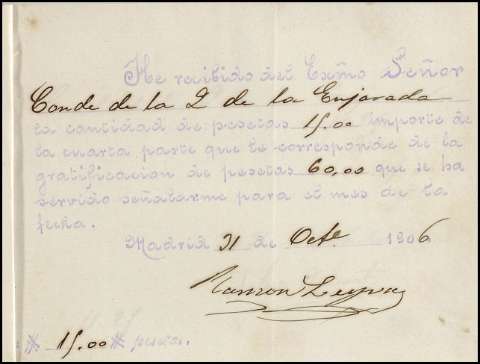 He recibido del Exmo Señor
Conde de la Q de la Enjarada
la cantidad de pesetas 15.00 importe de
la cuarta parte que le corresponde de la
gratificacion de pesetas 60,00 que se ha
servido señalarme para el mes de la
fecha.
Madrid 31 de Octe 1906
Ramon
# 15.00 # pesetas.